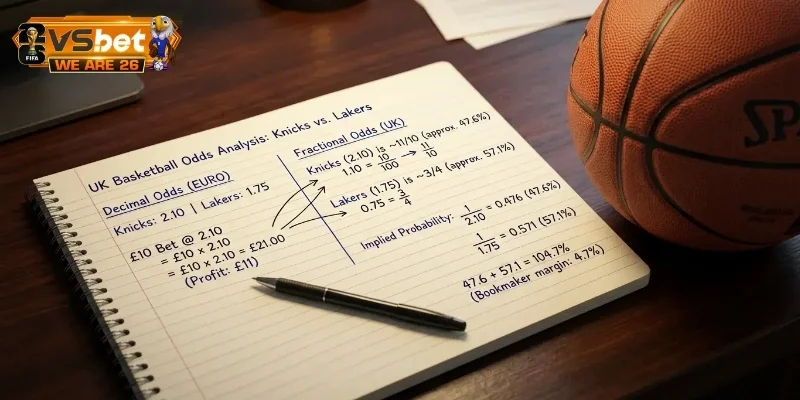 VSbet
FIFA
WE ARE 26
UK Basketball Odds Analysis: Knicks vs. Lakers
Decimal Odds (EURO)
Knicks: 2.10 | Lakers: 1.75
£10 Bet @ 2.10
= £10 x 2.10
= £10 x 2.10 = £21.00
(Profit: £11)
Fractional Odds (UK)
Knicks (2.10) is ~11/10 (approx. 47.6%)
1.10 = 10/100 → 11/10
Lakers (1.75) is ~3/4 (approx. 57.1%)
0.75 = 3/4
Implied Probability: 1/2.10 = 0.476 (47.6%)
1/1.75 = 0.571 (57.1%)
47.6 + 57.1 = 104.7%
(Bookmaker margin: 4.7%)